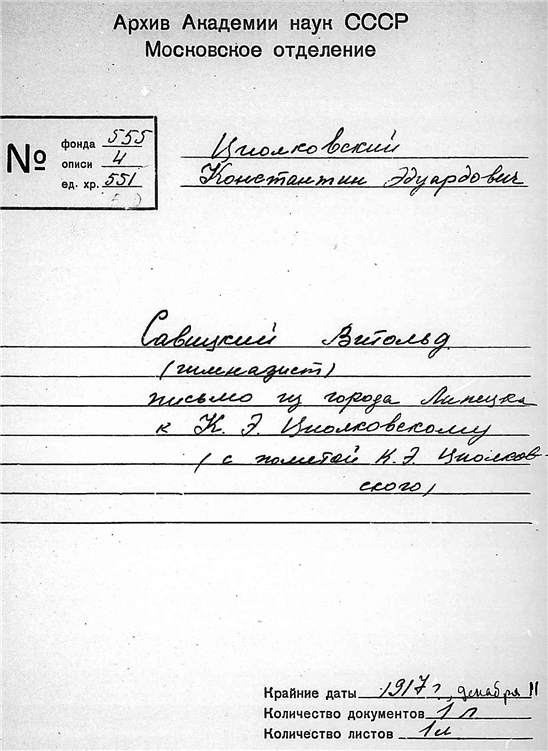 Архив Академии наук СССР
Московское отделение
№
фонда 555
описи 4
ед. хр. 551
Циолковский
Константин Эдуардович
Савицкий Витольд
(гимназист)
письмо из города Липецка
к К. Э. Циолковскому
(с пометой К.Э. Циолков-
ского)
Крайние даты 1917 г., декабря 11
Количество документов 1 л
Количество листов 1 л